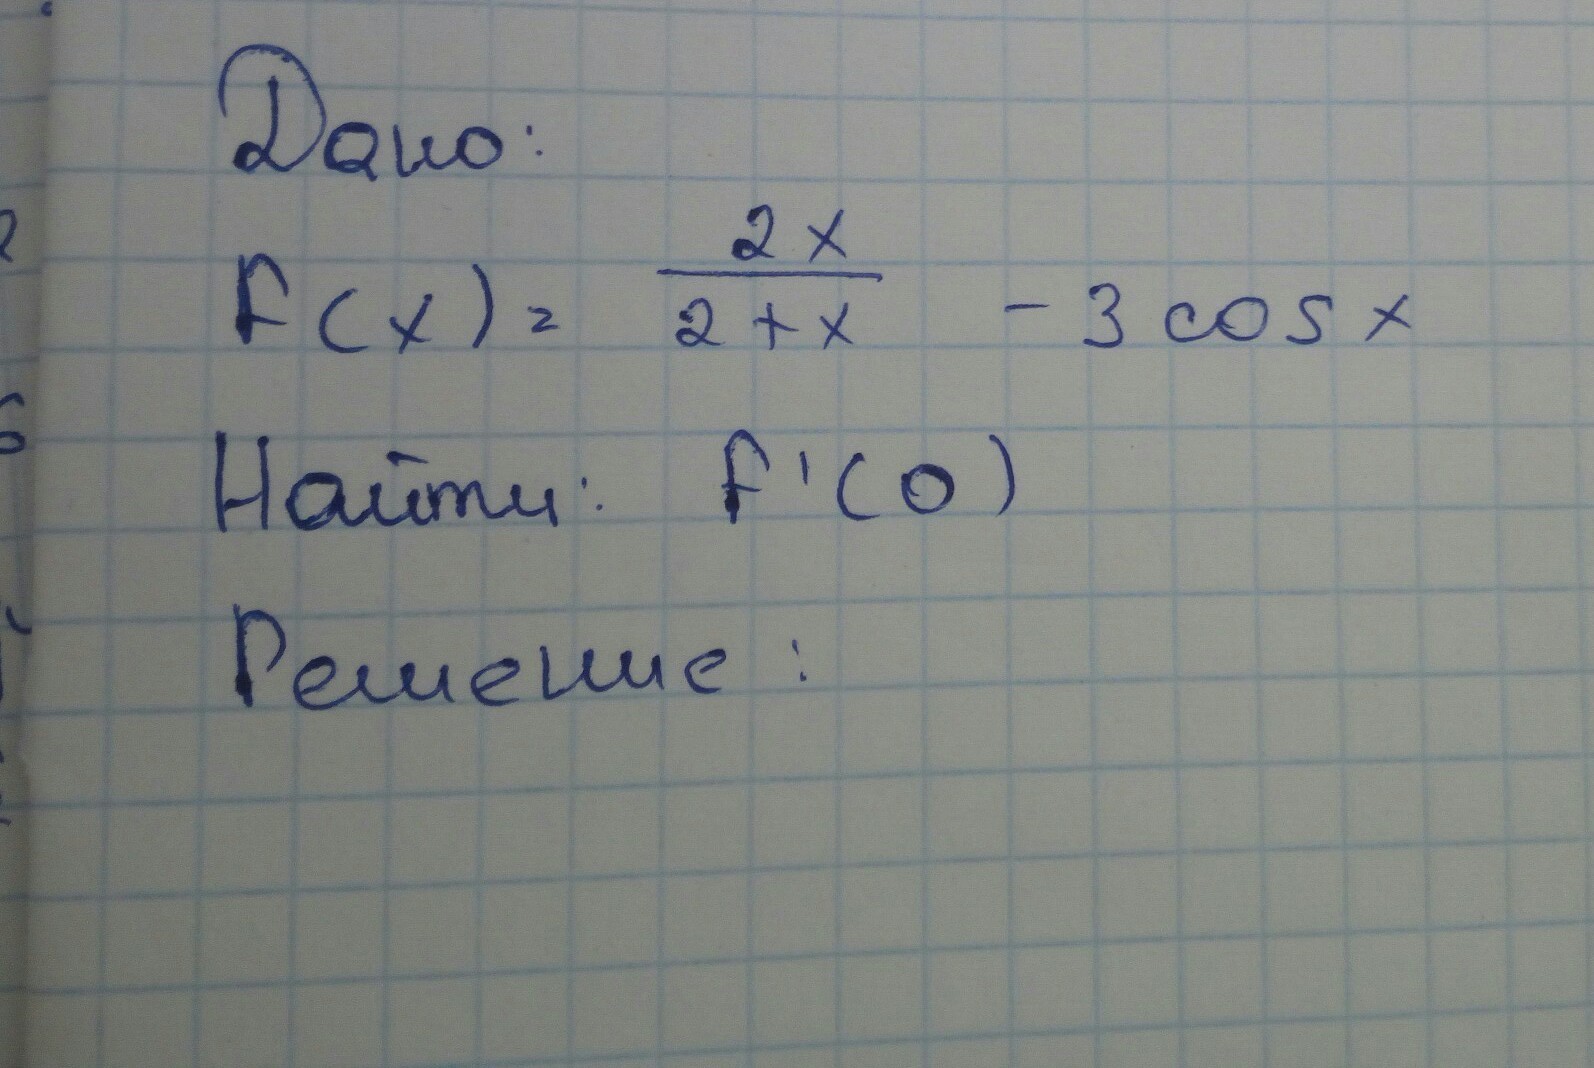 Дано:
f(x) = 2x / 2+x - 3 cos x
Найти: f'(0)
Решение: